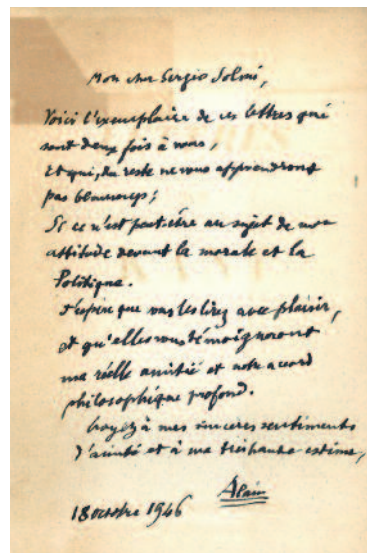 Mon cher Sergio Solmi,
Voici l'exemplaire de ces lettres qui
sont deux fois à vous,
Et qui, du reste ne vous apprendront
pas beaucoup;
Si ce n'est peut-être au sujet de mon
attitude devant la morale et la
Politique.
J'espère que vous les lirez avec plaisir,
et qu'elles vous témoigneront
ma réelle amitié et notre accord
philosophique profond.
Croyez à mes sincères sentiments
d'amitié et à ma très haute estime,
Alain
18 octobre 1946